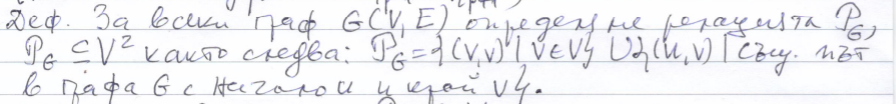 Деф. За всеки граф G(V,E) определяме релацията P_G,
P_G ⊆ V² както следва: P_G = {(v,v) | v ∈ V} ∪ {(u,v) | същ. път
в графа G с начало u и край v}.